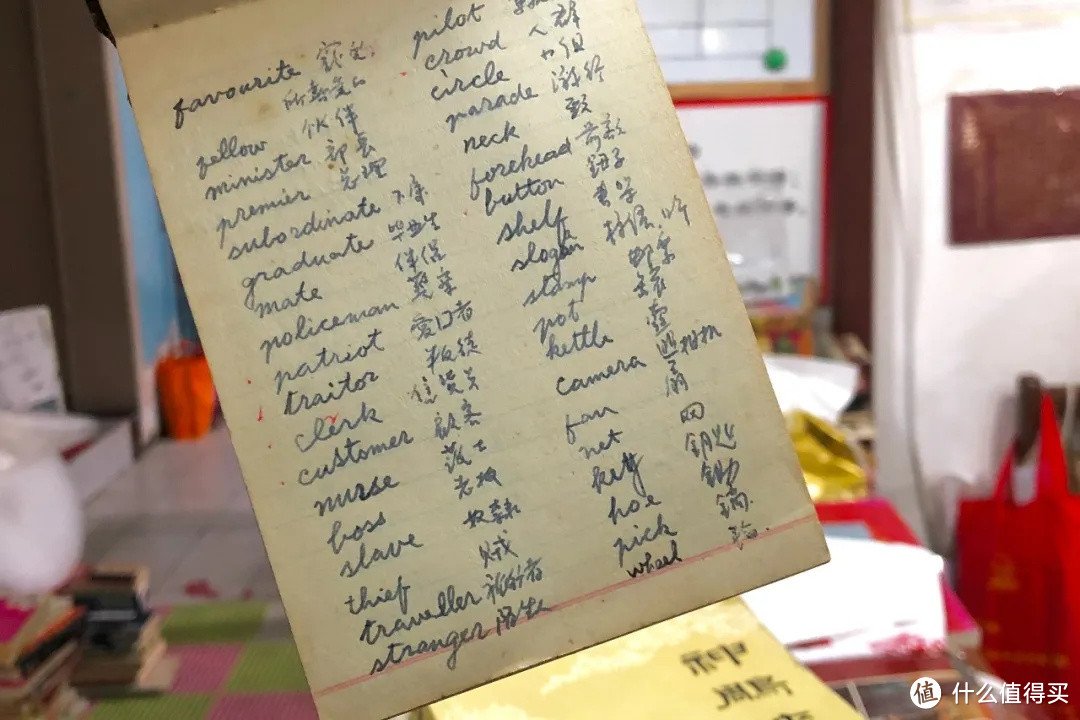 favourite
所喜爱的
fellow 伙伴
minister 部长
premier 总理
subordinate 下属
graduate 毕业生
mate 伴侣
policeman 警察
patriot 爱国者
traitor 叛徒
clerk
customer 顾客
nurse 护士
boss 老板
slave 奴隶
thief 贼
traveller 旅行者
stranger 陌生人
pilot
crowd 人群
circle
parade 游行
neck 颈
forehead 前额
button 钮子
shelf 书架
slogan 标语
stamp 邮票
pot
kettle 壶
camera 照相机
fan 扇
net 网
key 钥匙
hoe 锄
pick 镐
wheel 轮
值 什么值得买